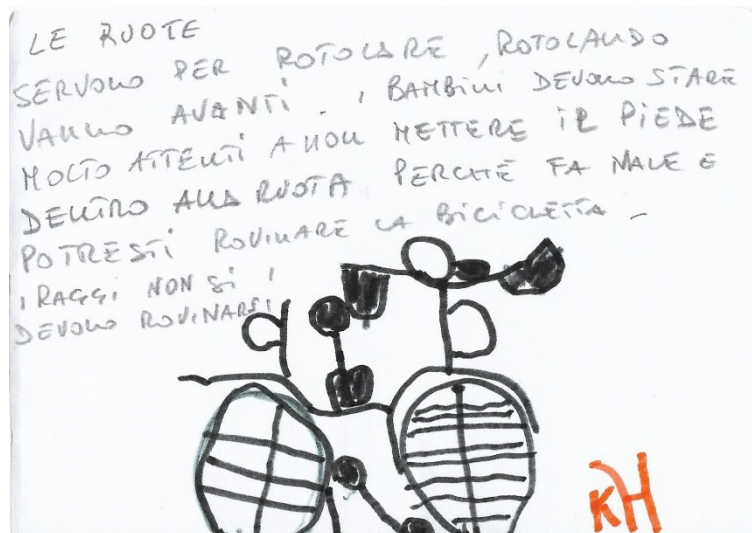 LE RUOTE
SERVONO PER ROTOLARE, ROTOLANDO
VANNO AVANTI. I BAMBINI DEVONO STARE
MOLTO ATTENTI A NON METTERE IL PIEDE
DENTRO ALLA RUOTA PERCHÈ FA MALE E
POTRESTI ROVINARE LA BICICLETTA -
I RAGGI NON SI
DEVONO ROVINARSI
KH